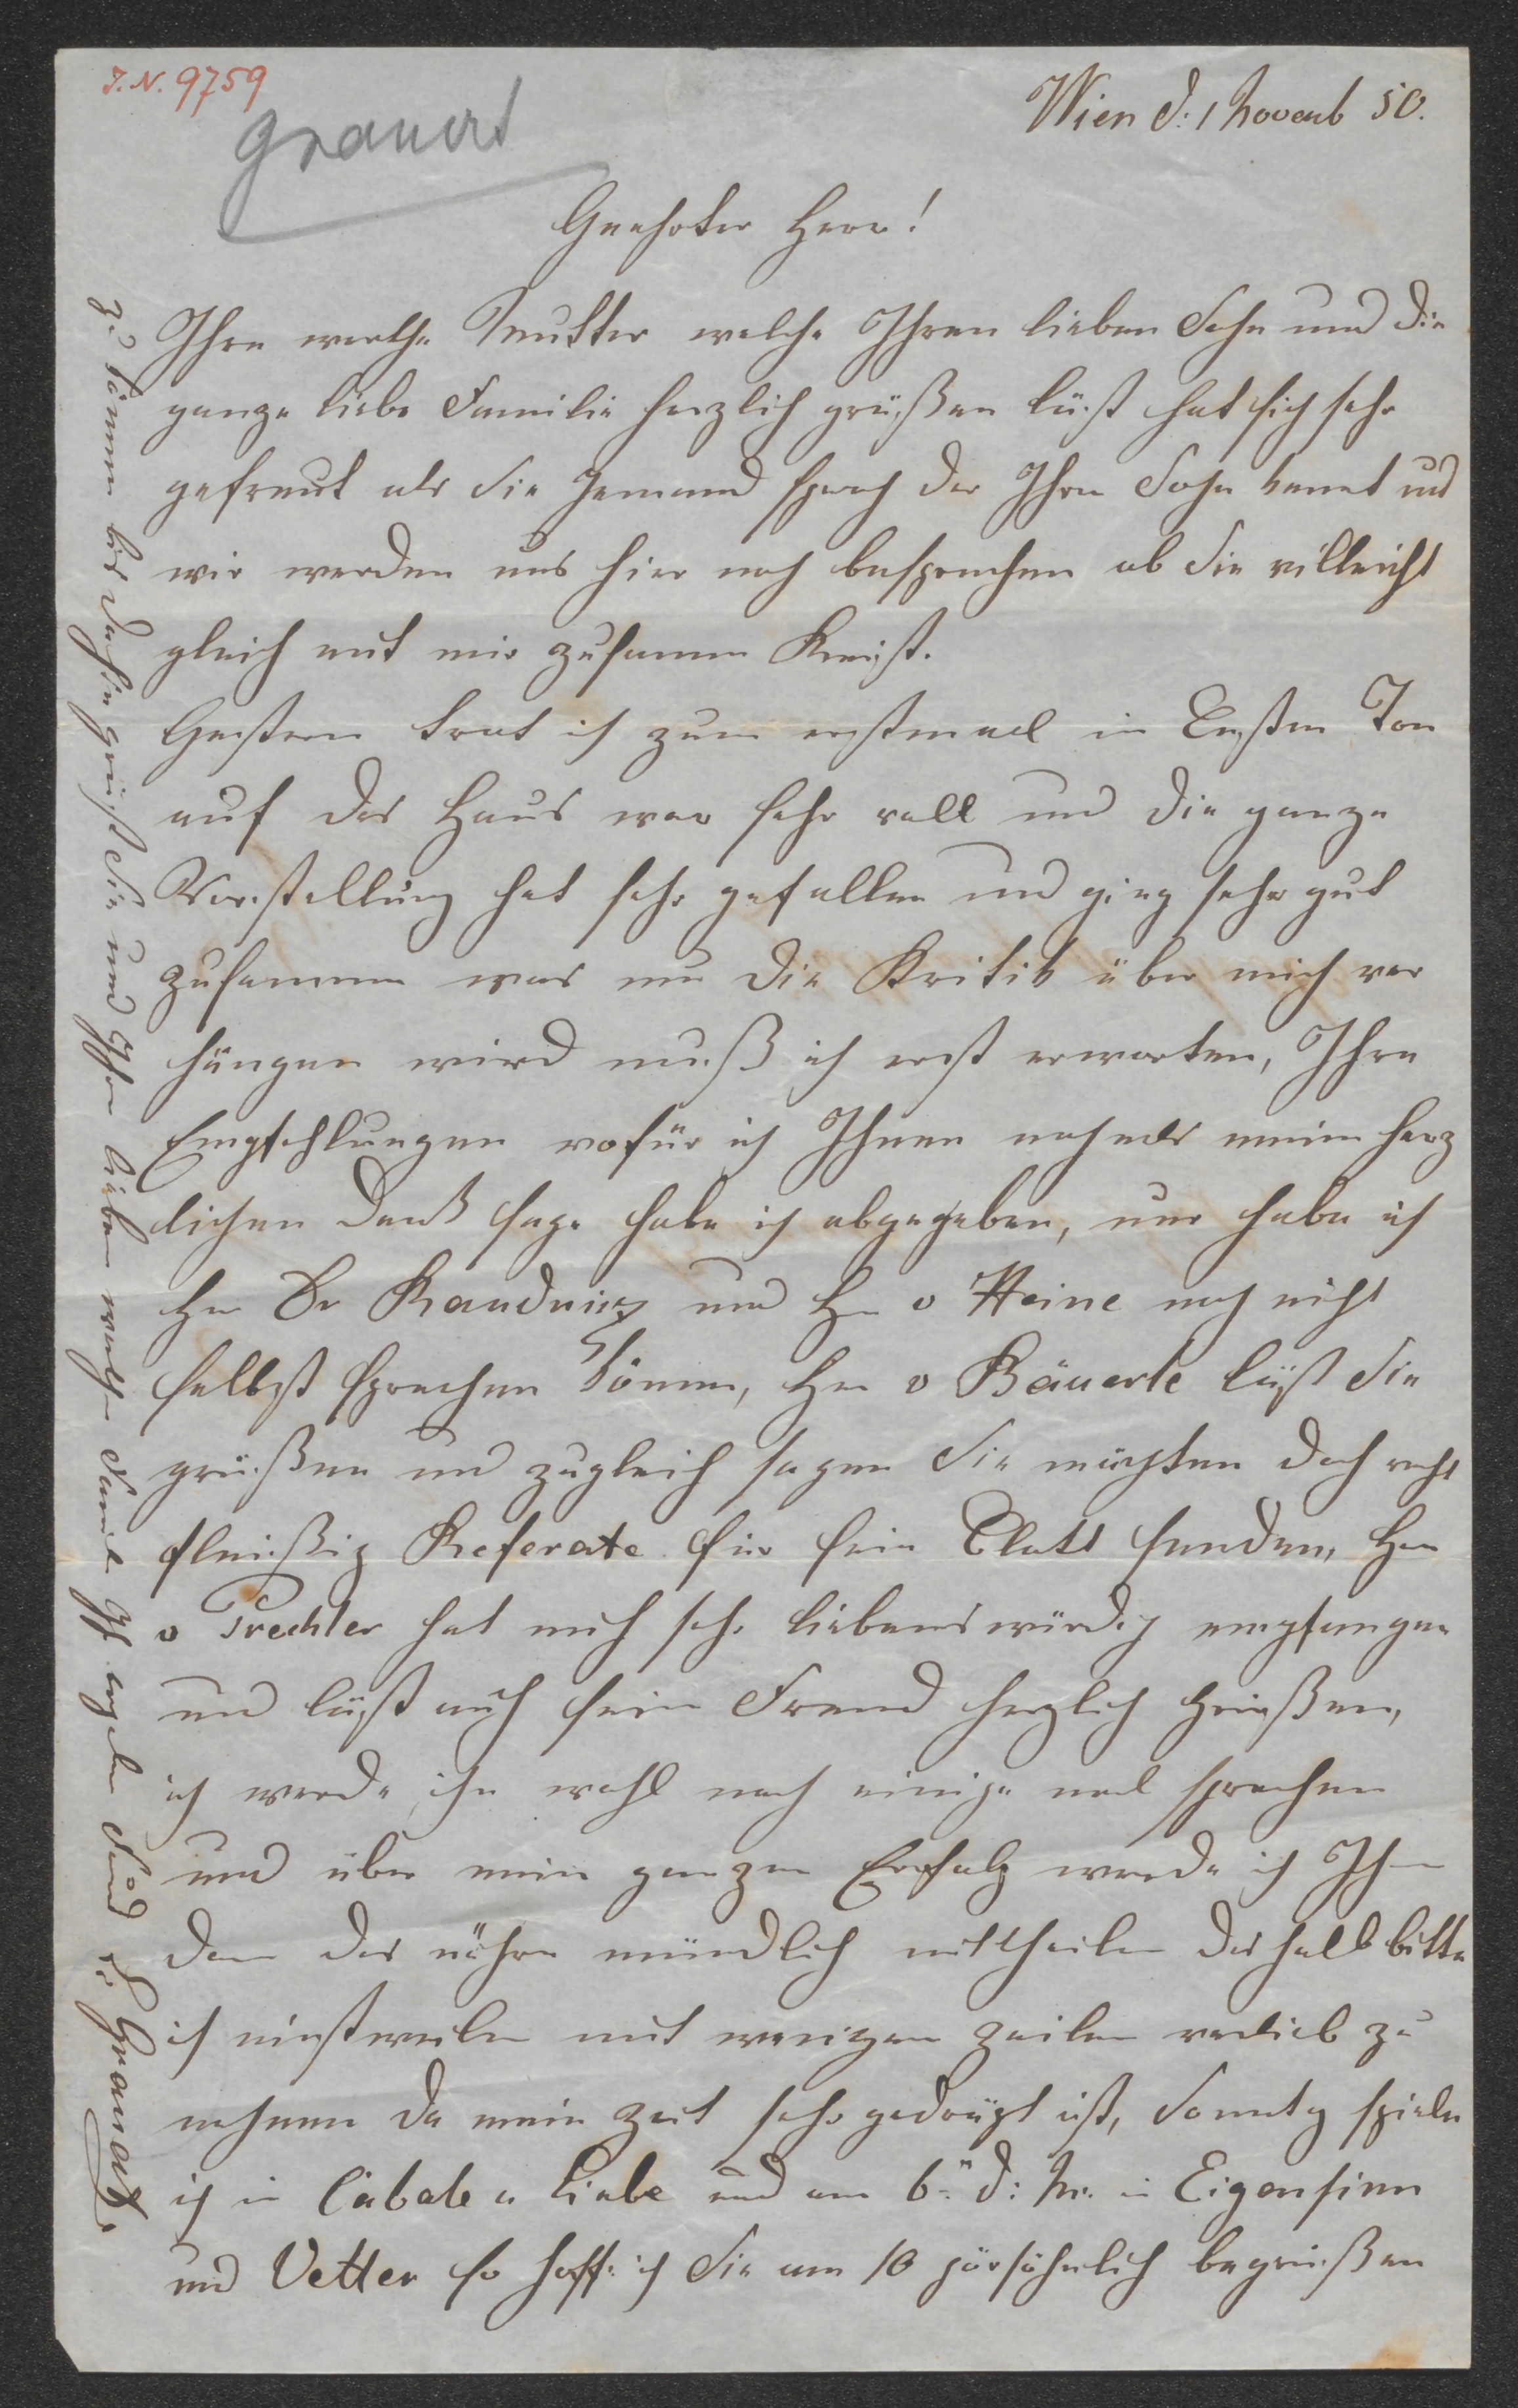 I.N. 9759
Granert
Wien d: 1 Novemb 50.
Geehrter Herr!
Ihre werthe Mutter welche Ihren lieben Sohn und die
ganze liebe Familie herzlich grüßen läßt hat sich sehr
gefreut als Sie Jemand sprach der Ihren Sohn kennt und
wir werden uns hier noch besprechen ob Sie villeicht
gleich mit mir zusamen Reist.
Gestern trat ich zum erstenmal in Ersten Ton
auf das Haus war sehr voll und die ganze
Vorstellung hat sehr gefallen und ging sehr gut
zusammen was nun die Kritik über mich ver
hängen wird muß ich erst erwarten, Ihre
Empfehlungen wofür ich Ihnen nochmals meinen herz
lichen Dank sage habe ich abgegeben, nur habe ich
Hn Dr Raudnitz und Hn v Heine noch nicht
selbst sprechen könen, Hn v Bäuerle läßt Sie
grüßen und zugleich sagen Sie möchten doch recht
fleißig Referate für sein Blatt senden, Hn
v Prechtler hat mich sehr liebenswürdig empfangen
und läßt auch sein Freund herzlich Grüßen,
ich werde ihn wohl noch einige mal sprechen
und über mein ganzen Erfolg werde ich Ihn
dan das nähre mündlich mittheilen deshalb bitte
ich einstweilen mit wenigen Zeilen verlieb zu
nehmen da mein Zeit sehr gedrängt ist, Sonntag spiele
ich in Cabale u Liebe und am 6n d: M. in Eigensinn
und Vetter so hoffe ich Sie am 10 pörsöhnlich begrüßen
zu könnnen bis dahin grüßt Sie und Ihre lieben werthe Familie Ihr ergebn Freund Granert.